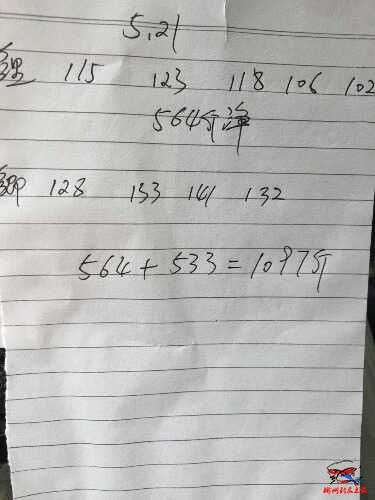 5.21
115 123 118 106 102
564斤净
128 133 141 132
564+533=1097斤
郴州钓鱼之家